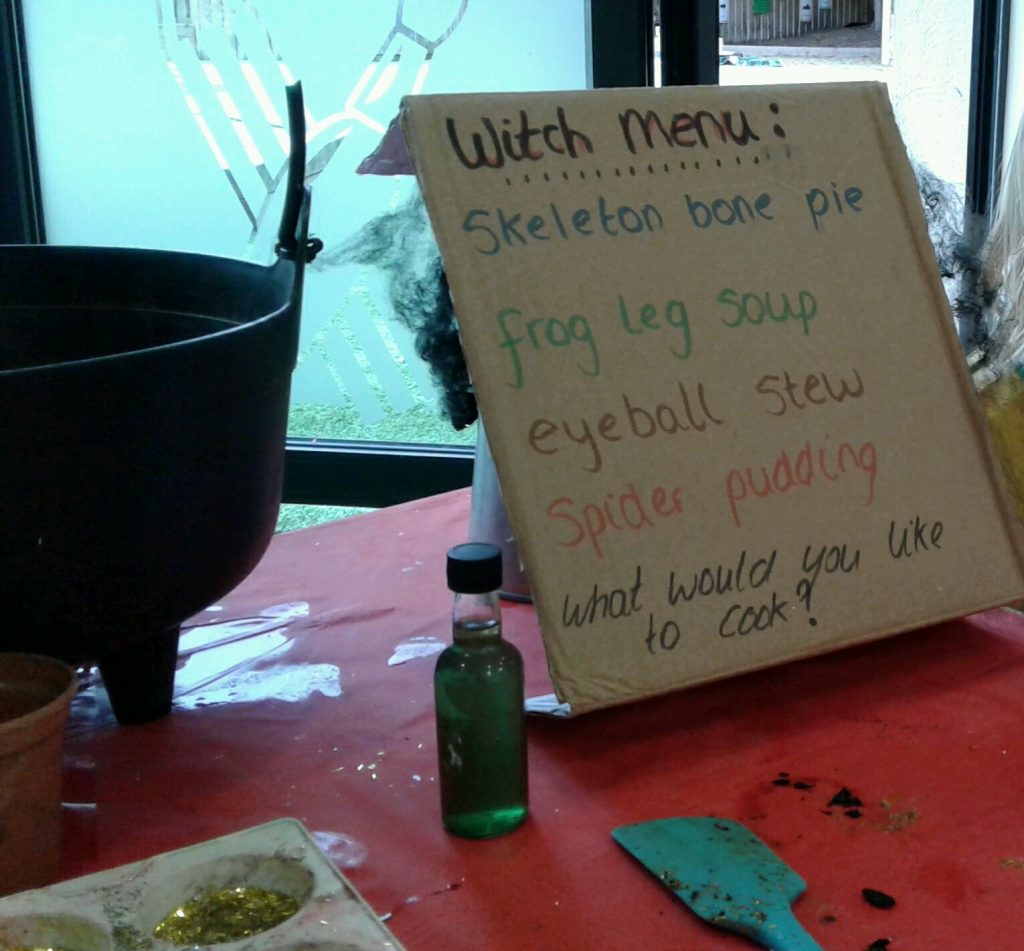 Witch menu:
Skeleton bone pie
frog leg soup
eyeball stew
Spider pudding
what would you like
to cook?